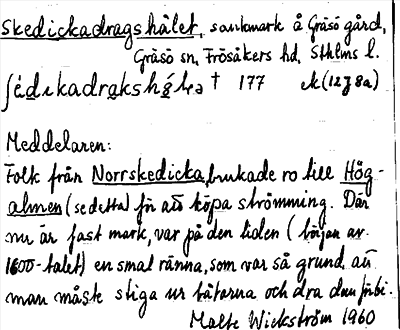 Skedickadragshålet, sankmark å Gräsö gård,
Gräsö sn, Frösåkers hd, Sthlms l.
† 177 ek (12 g 8a)
Meddelaren:
Folk från Norrskedicka, brukade ro till Hög-
almen (se detta) för att köpa strömming. Där
nu är fast mark, var på den tiden (början av
1600-talet) en smal ränna, som var så grund att
man måste stiga ur båtarna och dra dem förbi.
Malte Wickström 1960